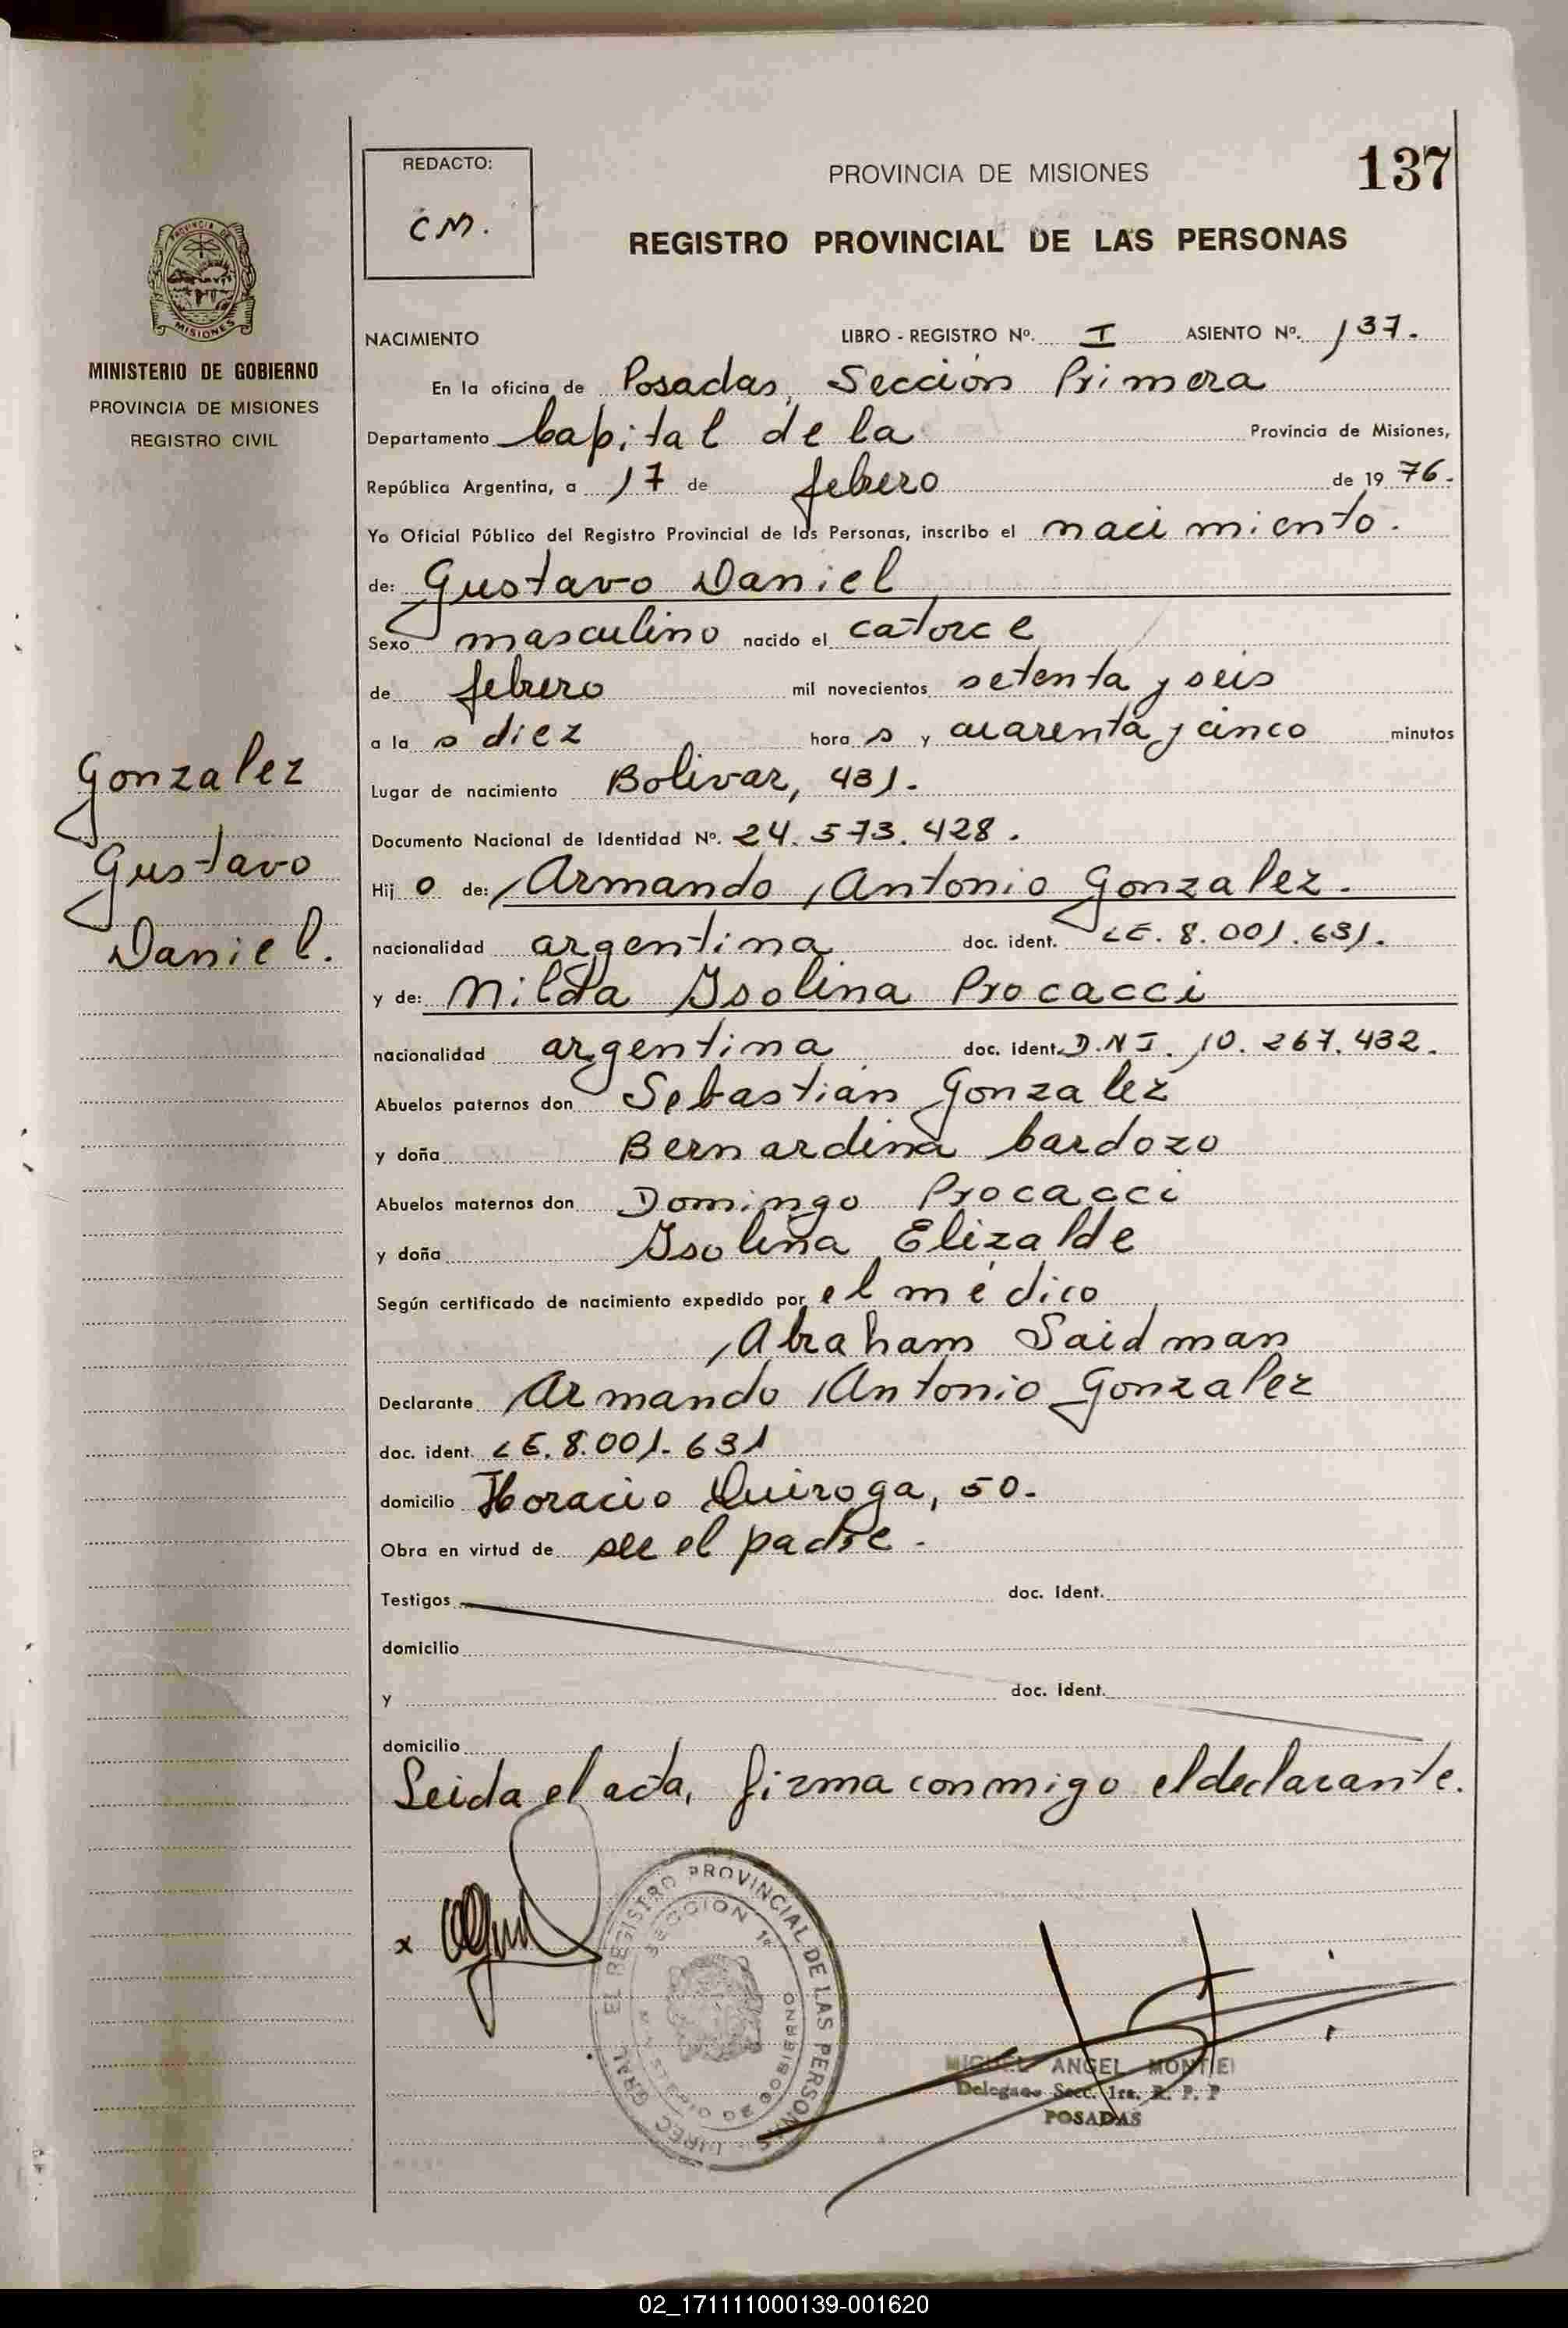 REDACTO:
CM.
PROVINCIA DE MISIONES
137
REGISTRO PROVINCIAL DE LAS PERSONAS
PROVINCIA DE
MISIONES
MINISTERIO DE GOBIERNO
PROVINCIA DE MISIONES
REGISTRO CIVIL
Gonzalez
Gustavo
Daniel.
NACIMIENTO LIBRO - REGISTRO Nº. I ASIENTO Nº. 137.
En la oficina de Posadas, Sección Primera
Departamento Capital de la Provincia de Misiones,
República Argentina, a 17 de febrero de 19 76.
Yo Oficial Público del Registro Provincial de las Personas, inscribo el nacimiento.
de: Gustavo Daniel
Sexo masculino nacido el catorce
de febrero mil novecientos setenta y seis
a la s diez hora s y cuarenta y cinco minutos
Lugar de nacimiento Bolivar, 431.
Documento Nacional de Identidad Nº. 24.573.428.
Hij o de: Armando Antonio Gonzalez.
nacionalidad argentina doc. ident. LE. 8.001.631.
y de: Nilda Isolina Procacci
nacionalidad argentina doc. ident. D.N.I. 10.267.432.
Abuelos paternos don Sebastián Gonzalez
y doña Bernardina Cardozo
Abuelos maternos don Domingo Procacci
y doña Isolina Elizalde
Según certificado de nacimiento expedido por el médico
Abraham Saidman
Declarante Armando Antonio Gonzalez
doc. ident. LE. 8.001.631
domicilio Horacio Quiroga, 50.
Obra en virtud de ser el padre.
Testigos doc. ident.
domicilio
y doc. ident.
domicilio
Leida el acta, firma conmigo el declarante.
x
REGISTRO PROVINCIAL DE LAS PERSONAS
SECCION 1ª
MINISTERIO DE GOBIERNO
MIGUEL ANGEL MONTIEL
Delegado Secc. 1ra. R. P. P
POSADAS
02_171111000139-001620